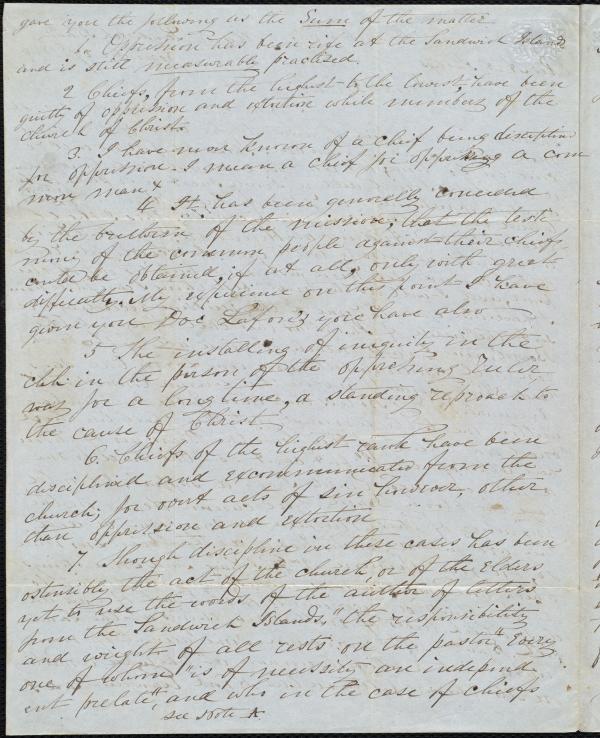 gave you the following as the Sum of the matter
1. Oppression has been rife at the Sandwich Islands
and is still measurably practised.
2 Chiefs, from the highest to the lowest, have been
guilty of oppression and extortion while members of the
church of Christ.
3. I have never known of a chief being disciplined
for oppression. I mean a chief for oppressing a com
mon man &
4 It has been generally conceded
by the brethren of the mission; that the testi
mony of the common people against their chiefs
could be obtained, if at all, only with great
difficulty. My experience on this point I have
given you Doc Lafon's you have also
5 The installing of iniquity in the
chh in the person of the oppressing ruler
was for a long time, a standing reproach to
the cause of Christ
6. Chiefs of the highest rank have been
disciplined and excommunicated from the
church; for overt acts of sin however, other
than oppression and extortion
7. Though discipline in these cases has been
ostensibly the act of the church, or of the Elders
yet to use the words of the author of letters
from the Sandwich Islands, "the responsibility
and weight of all rests on the pastor", Every
one of whom is of necessity an independ
ent prelate", and who in the case of chiefs
see Note A